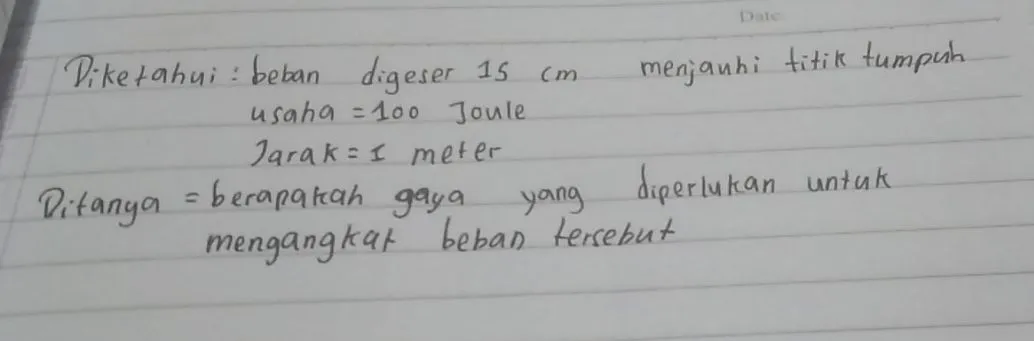 Date
Diketahui : beban digeser 15 cm menjauhi titik tumpuh
usaha = 100 Joule
Jarak = 1 meter
Ditanya = berapakah gaya yang diperlukan untuk
mengangkat beban tersebut